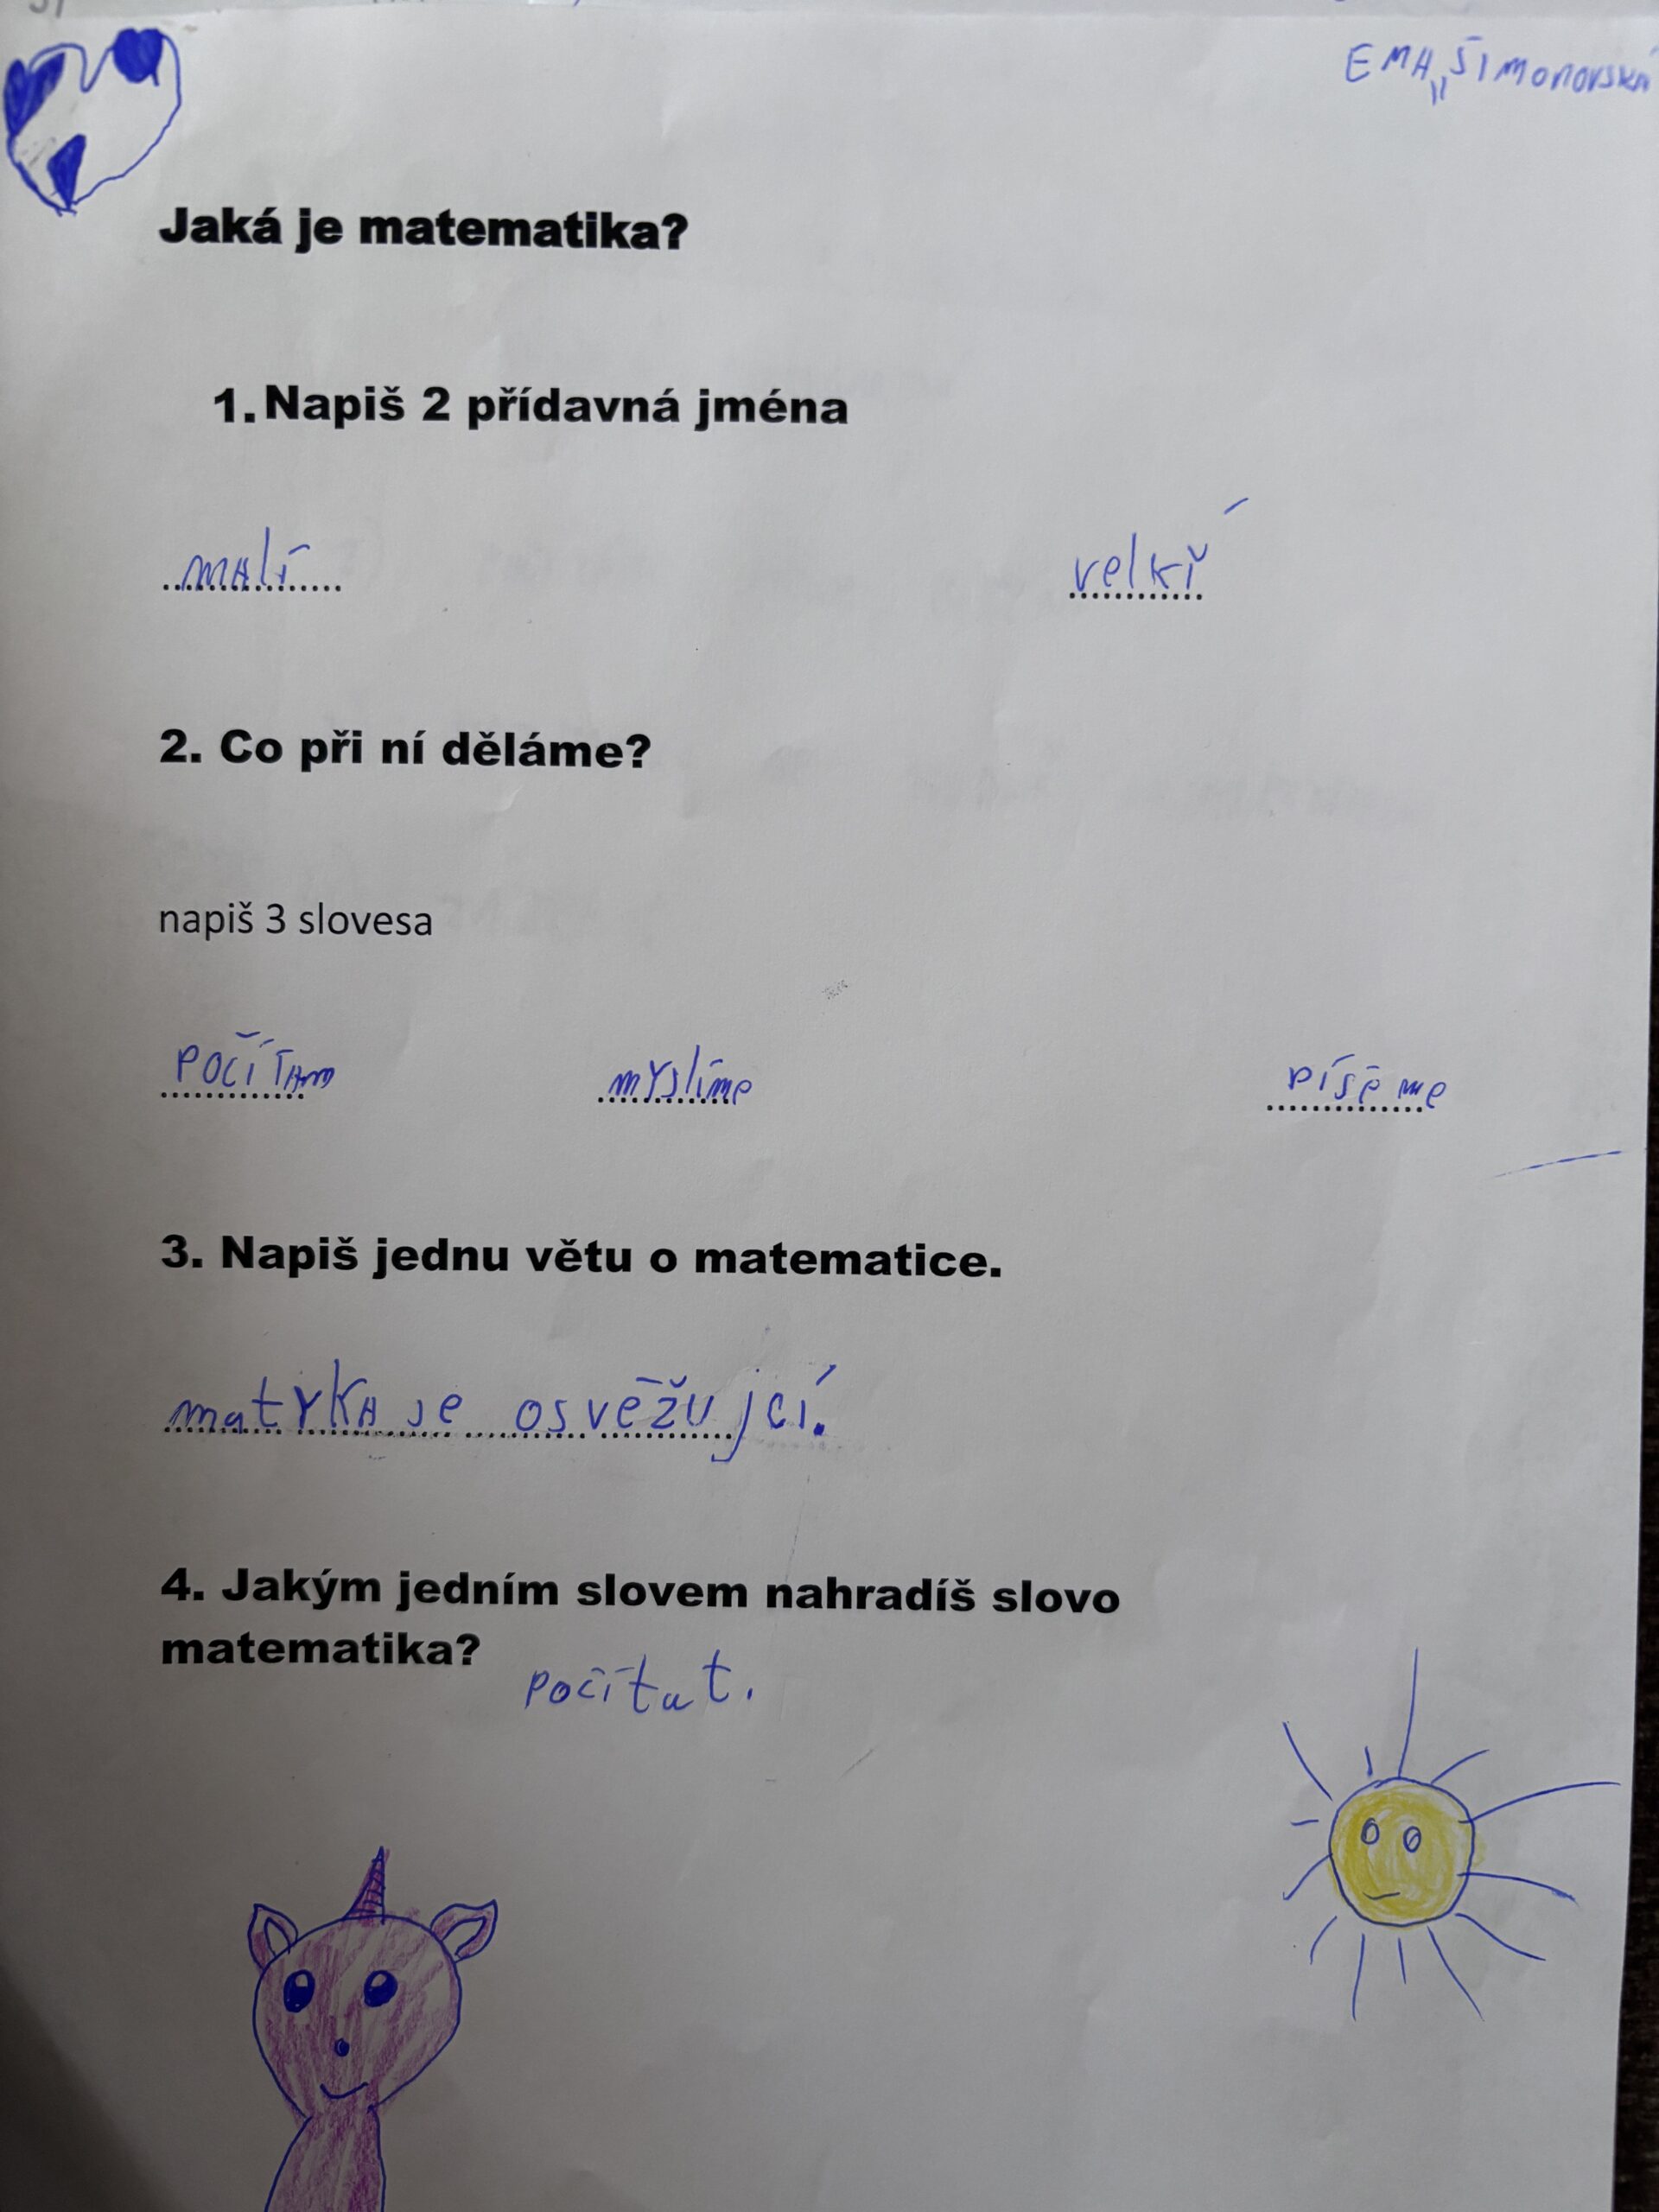 EMA ŠImonovská
Jaká je matematika?
1. Napiš 2 přídavná jména
malí velký
2. Co při ní děláme?
napiš 3 slovesa
počítam myslíme píšeme
3. Napiš jednu větu o matematice.
matyka je osvěžujcí.
4. Jakým jedním slovem nahradíš slovo
matematika? počítat.